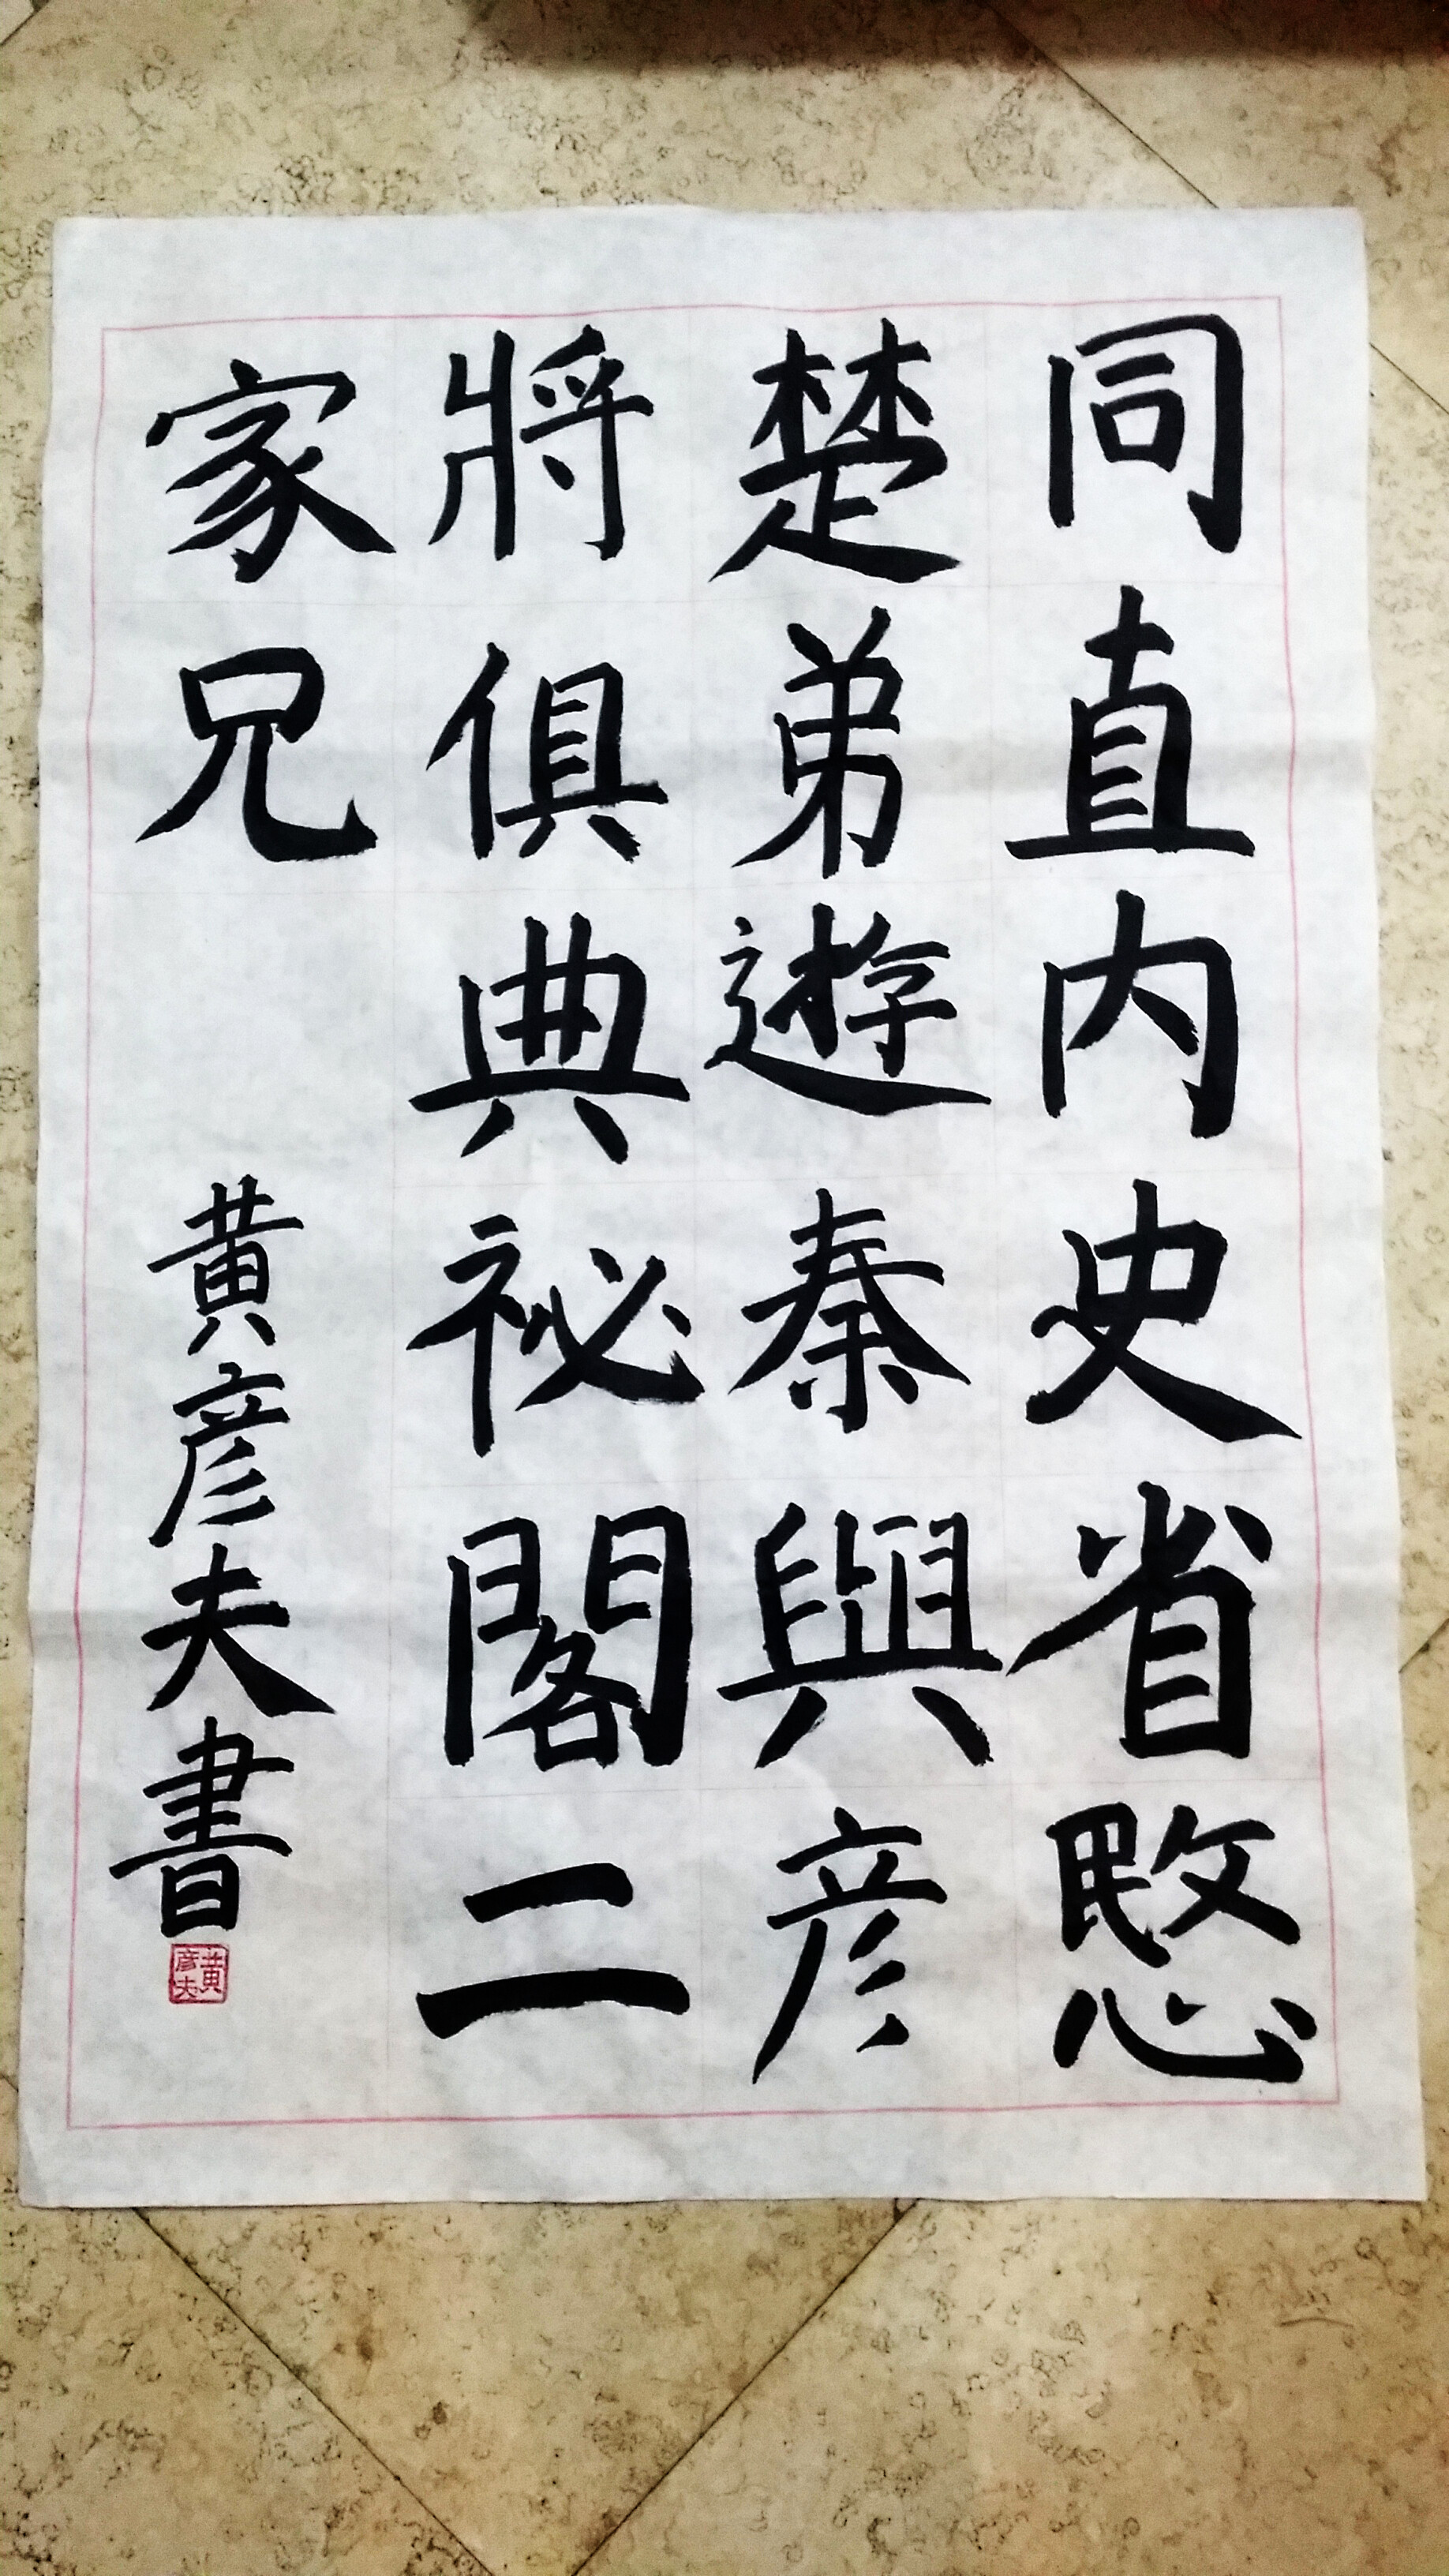 同直內史省愍
楚弟遊秦與彥
將俱典祕閣二
家兄
黃彥夫書
黃彥夫